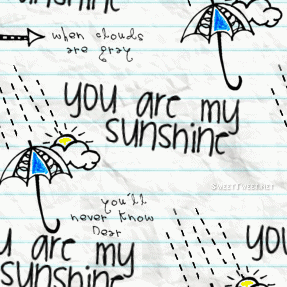 sunshine
when clouds
are gray
you are my
sunshine
SweetTweet.net
you'll
never know
Dear
u are my
sunshine
you